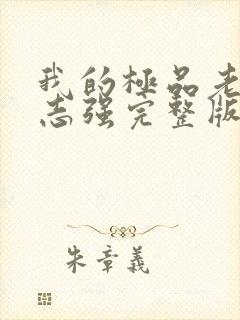 我的極品老
志强完整版
朱章義